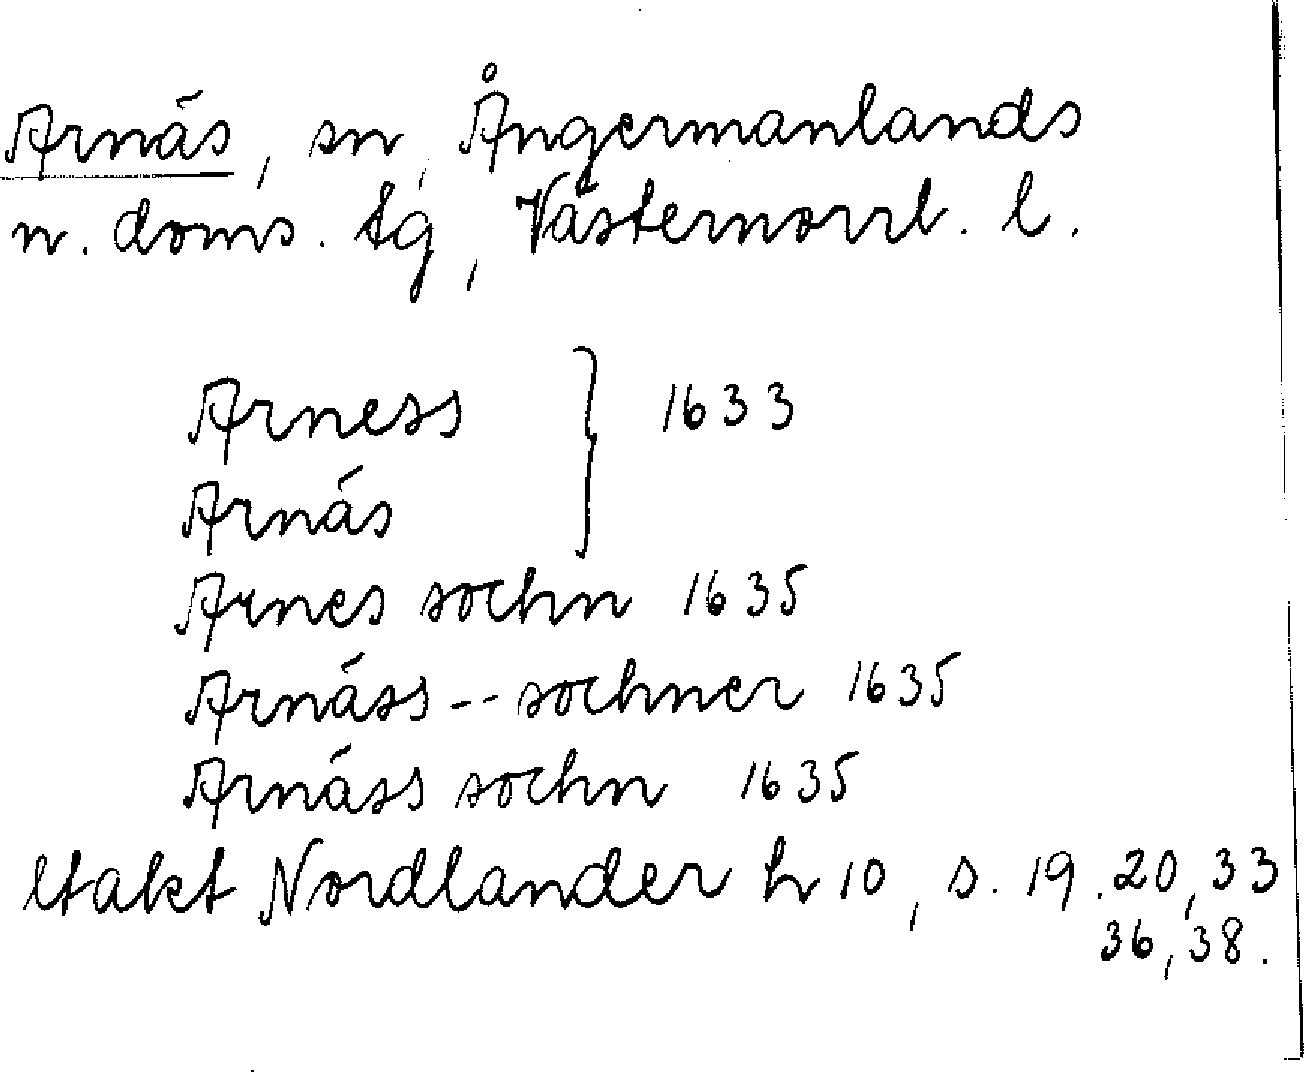 Arnäs, sn, Ångermanlands
n. doms. tg, Västernorrl. l.
Arness } 1633
Arnäs
Arnes sochn 1635
Arnäss -- sochner 1635
Arnäss sochn 1635
Utakt Nordlander h 10, s. 19. 20, 33
36, 38.